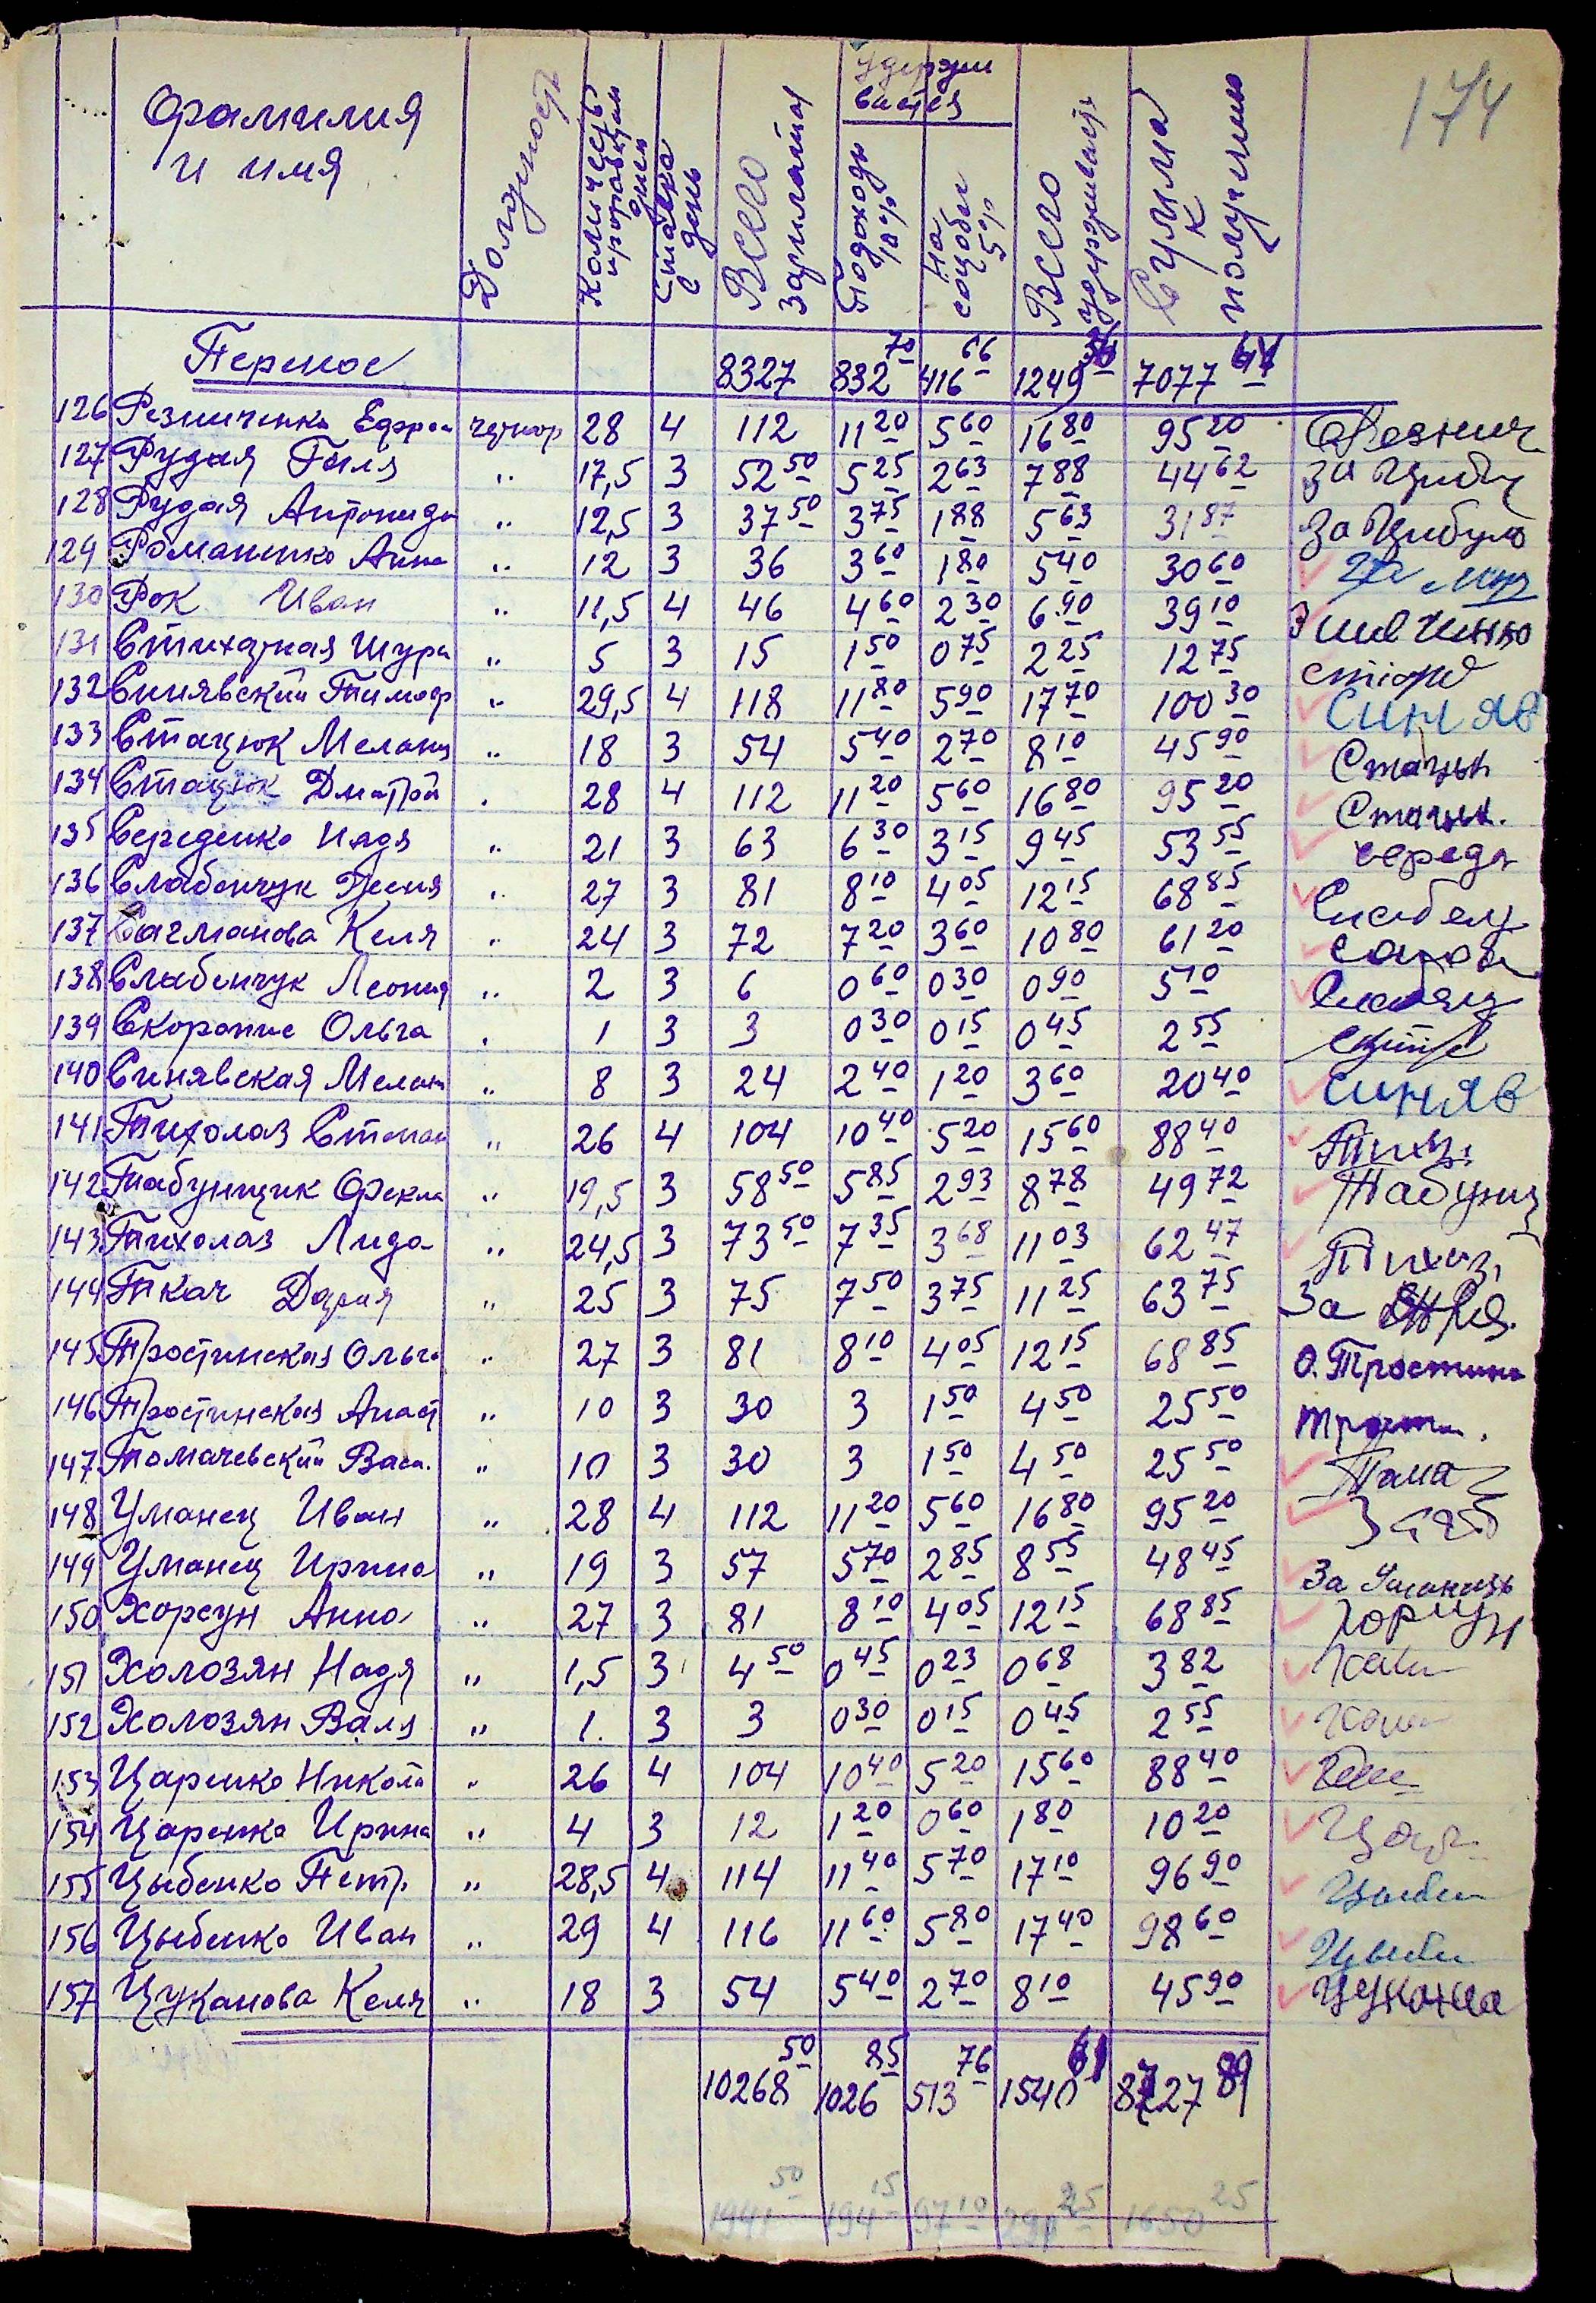 174
Фамилия и имя Должность Количество проработ дней Ставка в день Всего зарплата Удержи вается Подоход 10% На соцобес 5% Всего удерживает Сумма к получению
Перенос 8327 832 70 416 66 1249 36 7077 64
126 Резниченко Ефрем чернор 28 4 112 11 20 5 60 16 80 95 20
127 Рудая Галя " 17,5 3 52 50 5 25 2 63 7 88 44 62 За Цибу
128 Рудая Антонида " 12,5 3 37 50 3 75 1 88 5 63 31 87 За Цибулю
129 Романенко Анна " 12 3 36 3 60 1 80 5 40 30 60
130 Рок Иван " 11,5 4 46 4 60 2 30 6 90 39 10
131 Стихарная Шура " 5 3 15 1 50 0 75 2 25 12 75
132 Синявский Тимоф " 29,5 4 118 11 80 5 90 17 70 100 30 Синяв
133 Стацюк Мелания " 18 3 54 5 40 2 70 8 10 45 90 Стацюк
134 Стацюк Дмитрий " 28 4 112 11 20 5 60 16 80 95 20 Стацюк.
135 Середенко Надя " 21 3 63 6 30 3 15 9 45 53 55 середа
136 Слабенчук Геня " 27 3 81 8 10 4 05 12 15 68 85
137 Сагманова Келя " 24 3 72 7 20 3 60 10 80 61 20
138 Слабенчук Леонид " 2 3 6 0 60 0 30 0 90 5 10
139 Скорапис Ольга " 1 3 3 0 30 0 15 0 45 2 55
140 Синявская Мелан " 8 3 24 2 40 1 20 3 60 20 40 Синяв
141 Тихолаз Степан " 26 4 104 10 40 5 20 15 60 88 40 Тих.
142 Табунщик Фекла " 19,5 3 58 50 5 85 2 93 8 78 49 72 Табунщ
143 Тихолаз Лида " 24,5 3 73 50 7 35 3 68 11 03 62 47 Тихаз
144 Ткач Дария " 25 3 75 7 50 3 75 11 25 63 75 За
145 Тростинская Ольга " 27 3 81 8 10 4 05 12 15 68 85 О. Тростинс
146 Тростинская Анаст " 10 3 30 3 1 50 4 50 25 50
147 Томачевский Васи. " 10 3 30 3 1 50 4 50 25 50 Тома
148 Уманец Иван " 28 4 112 11 20 5 60 16 80 95 20
149 Уманец Ирина " 19 3 57 5 70 2 85 8 55 48 45 За Уманець
150 Хорсун Анна " 27 3 81 8 10 4 05 12 15 68 85 Хорсун
151 Холозян Надя " 1,5 3 4 50 0 45 0 23 0 68 3 82
152 Холозян Валя " 1 3 3 0 30 0 15 0 45 2 55
153 Царенко Никола " 26 4 104 10 40 5 20 15 60 88 40
154 Царенко Ирина " 4 3 12 1 20 0 60 1 80 10 20
155 Цыбенко Петр. " 28,5 4 114 11 40 5 70 17 10 96 90 Цыбен
156 Цыбенко Иван " 29 4 116 11 60 5 80 17 40 98 60 Цыбен
157 Цуканова Келя " 18 3 54 5 40 2 70 8 10 45 90 Цуканова
10268 50 1026 85 513 76 1540 61 8727 89
1941 50 194 15 97 10 291 25 1650 25